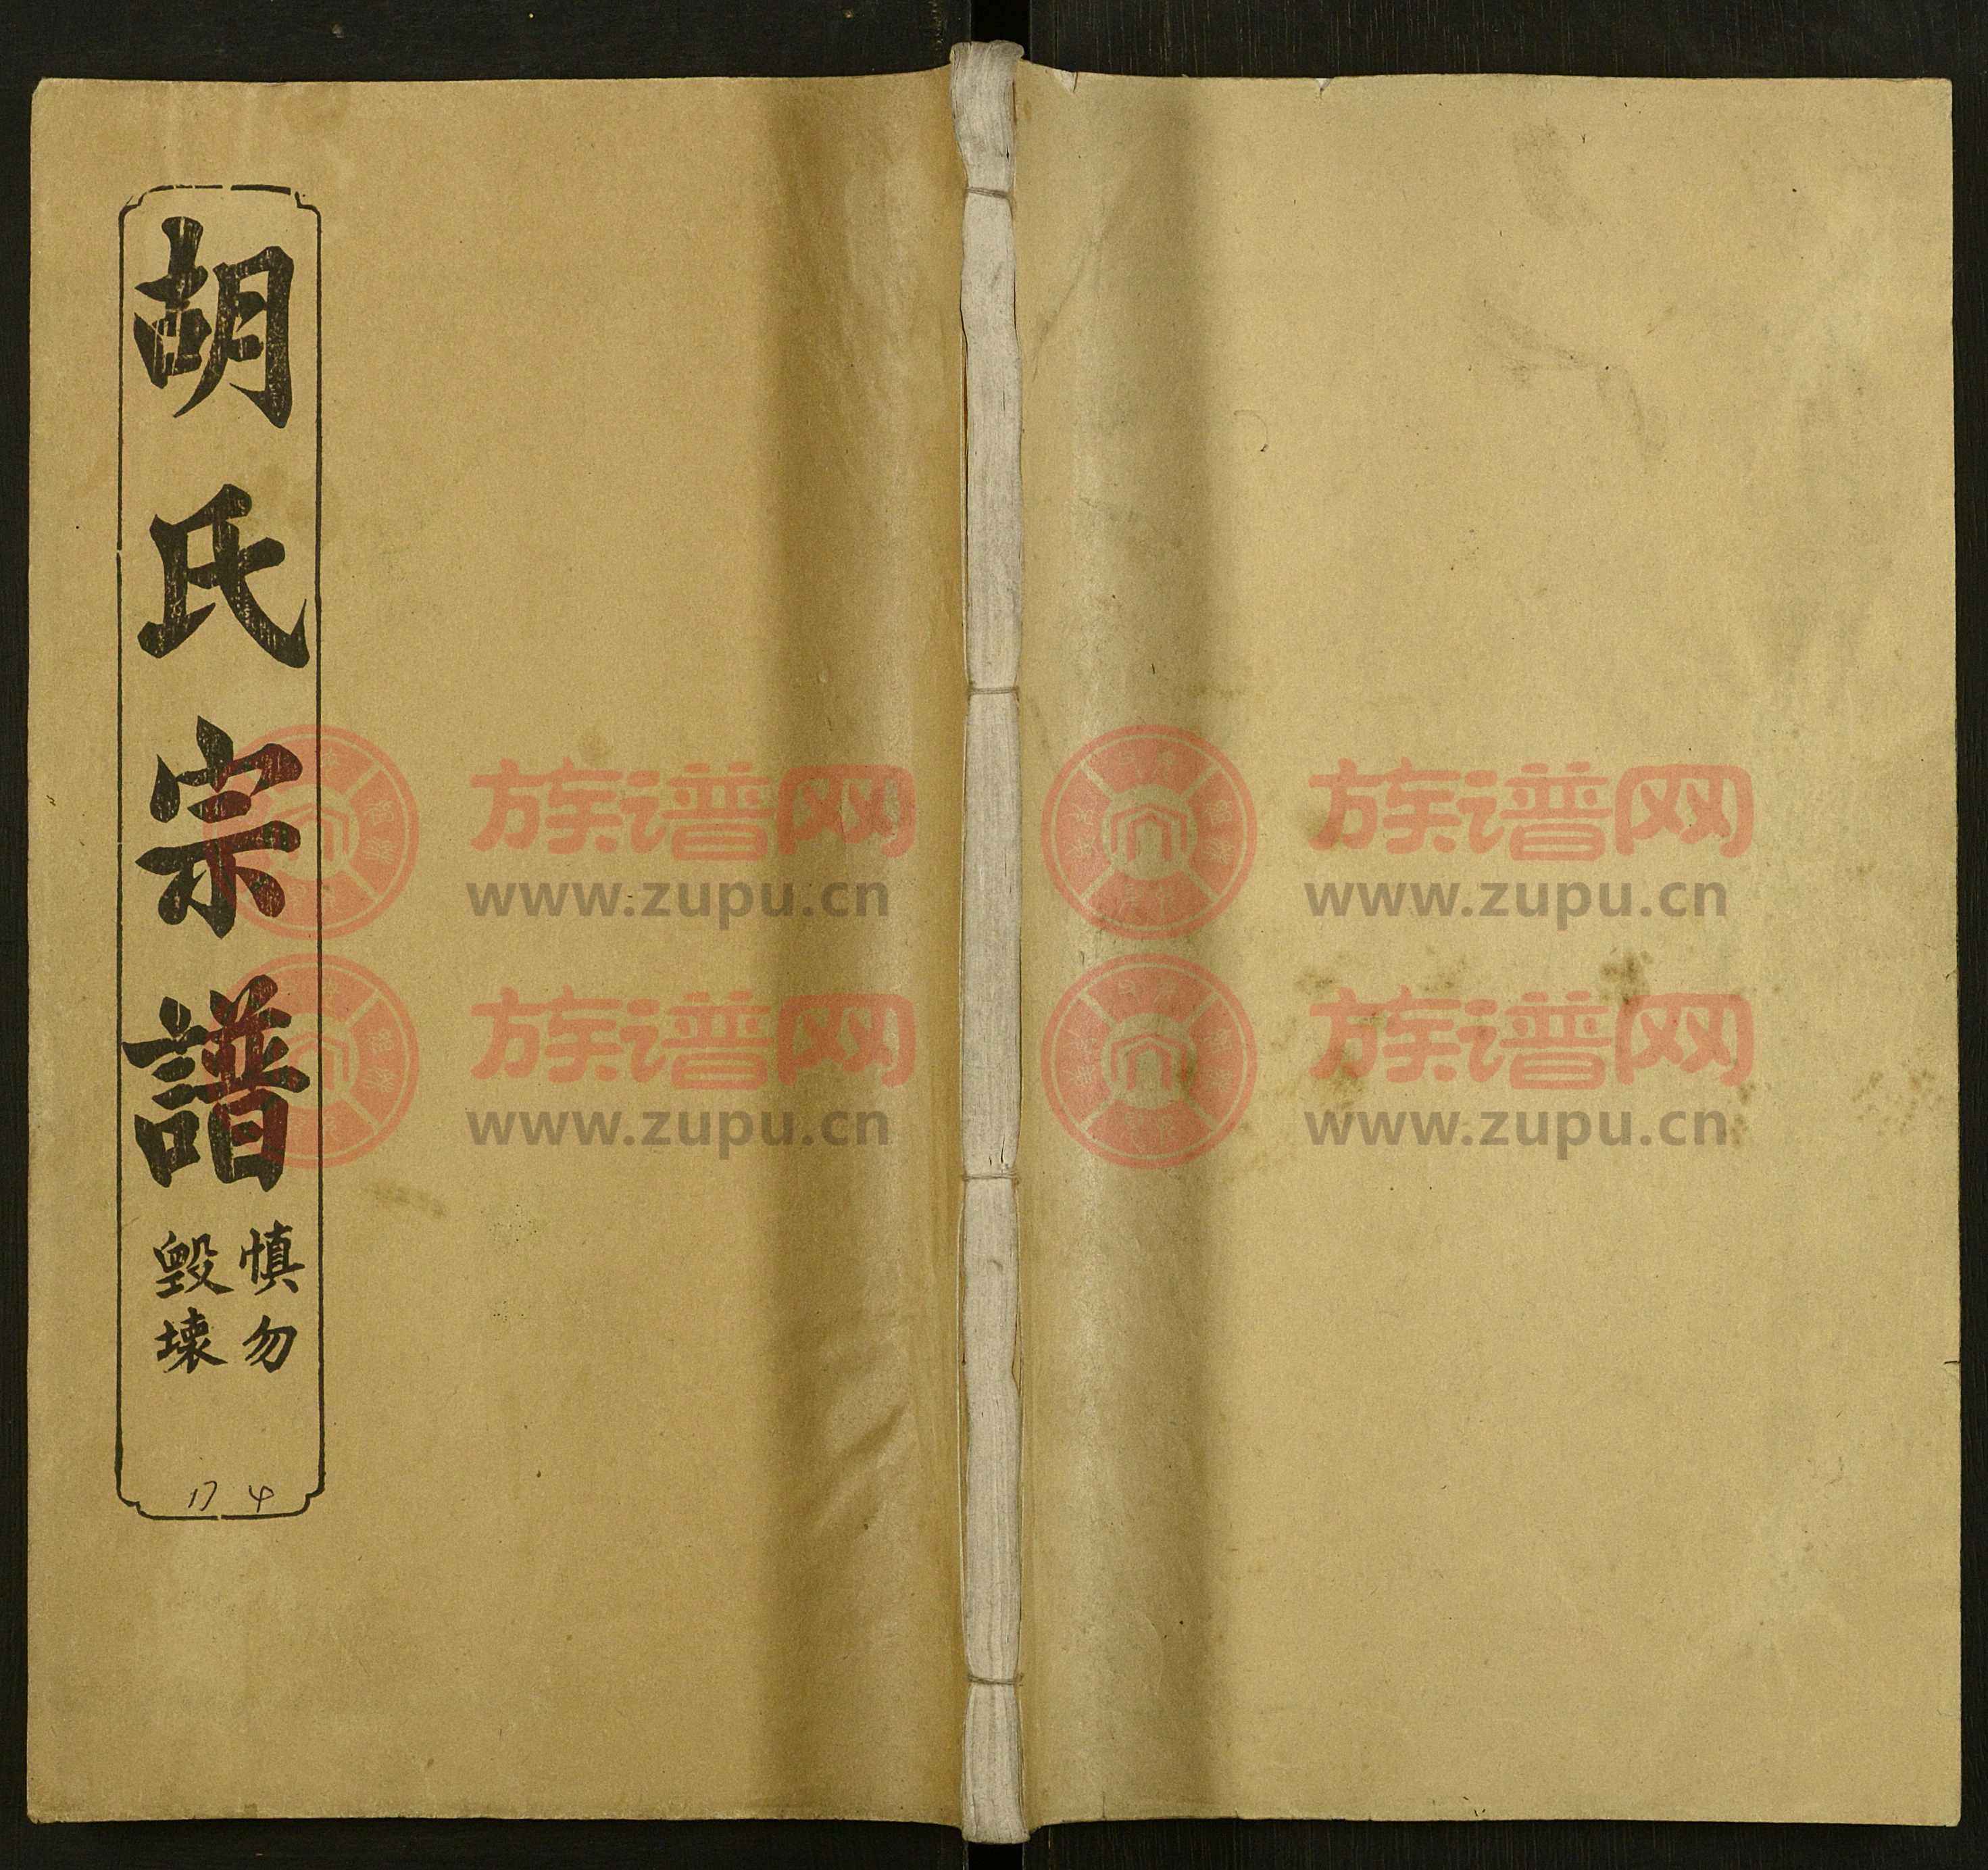 胡氏宗譜
慎勿
毀壞
17 4
族谱网
www.zupu.cn
族谱网
www.zupu.cn
族谱网
www.zupu.cn
族谱网
www.zupu.cn